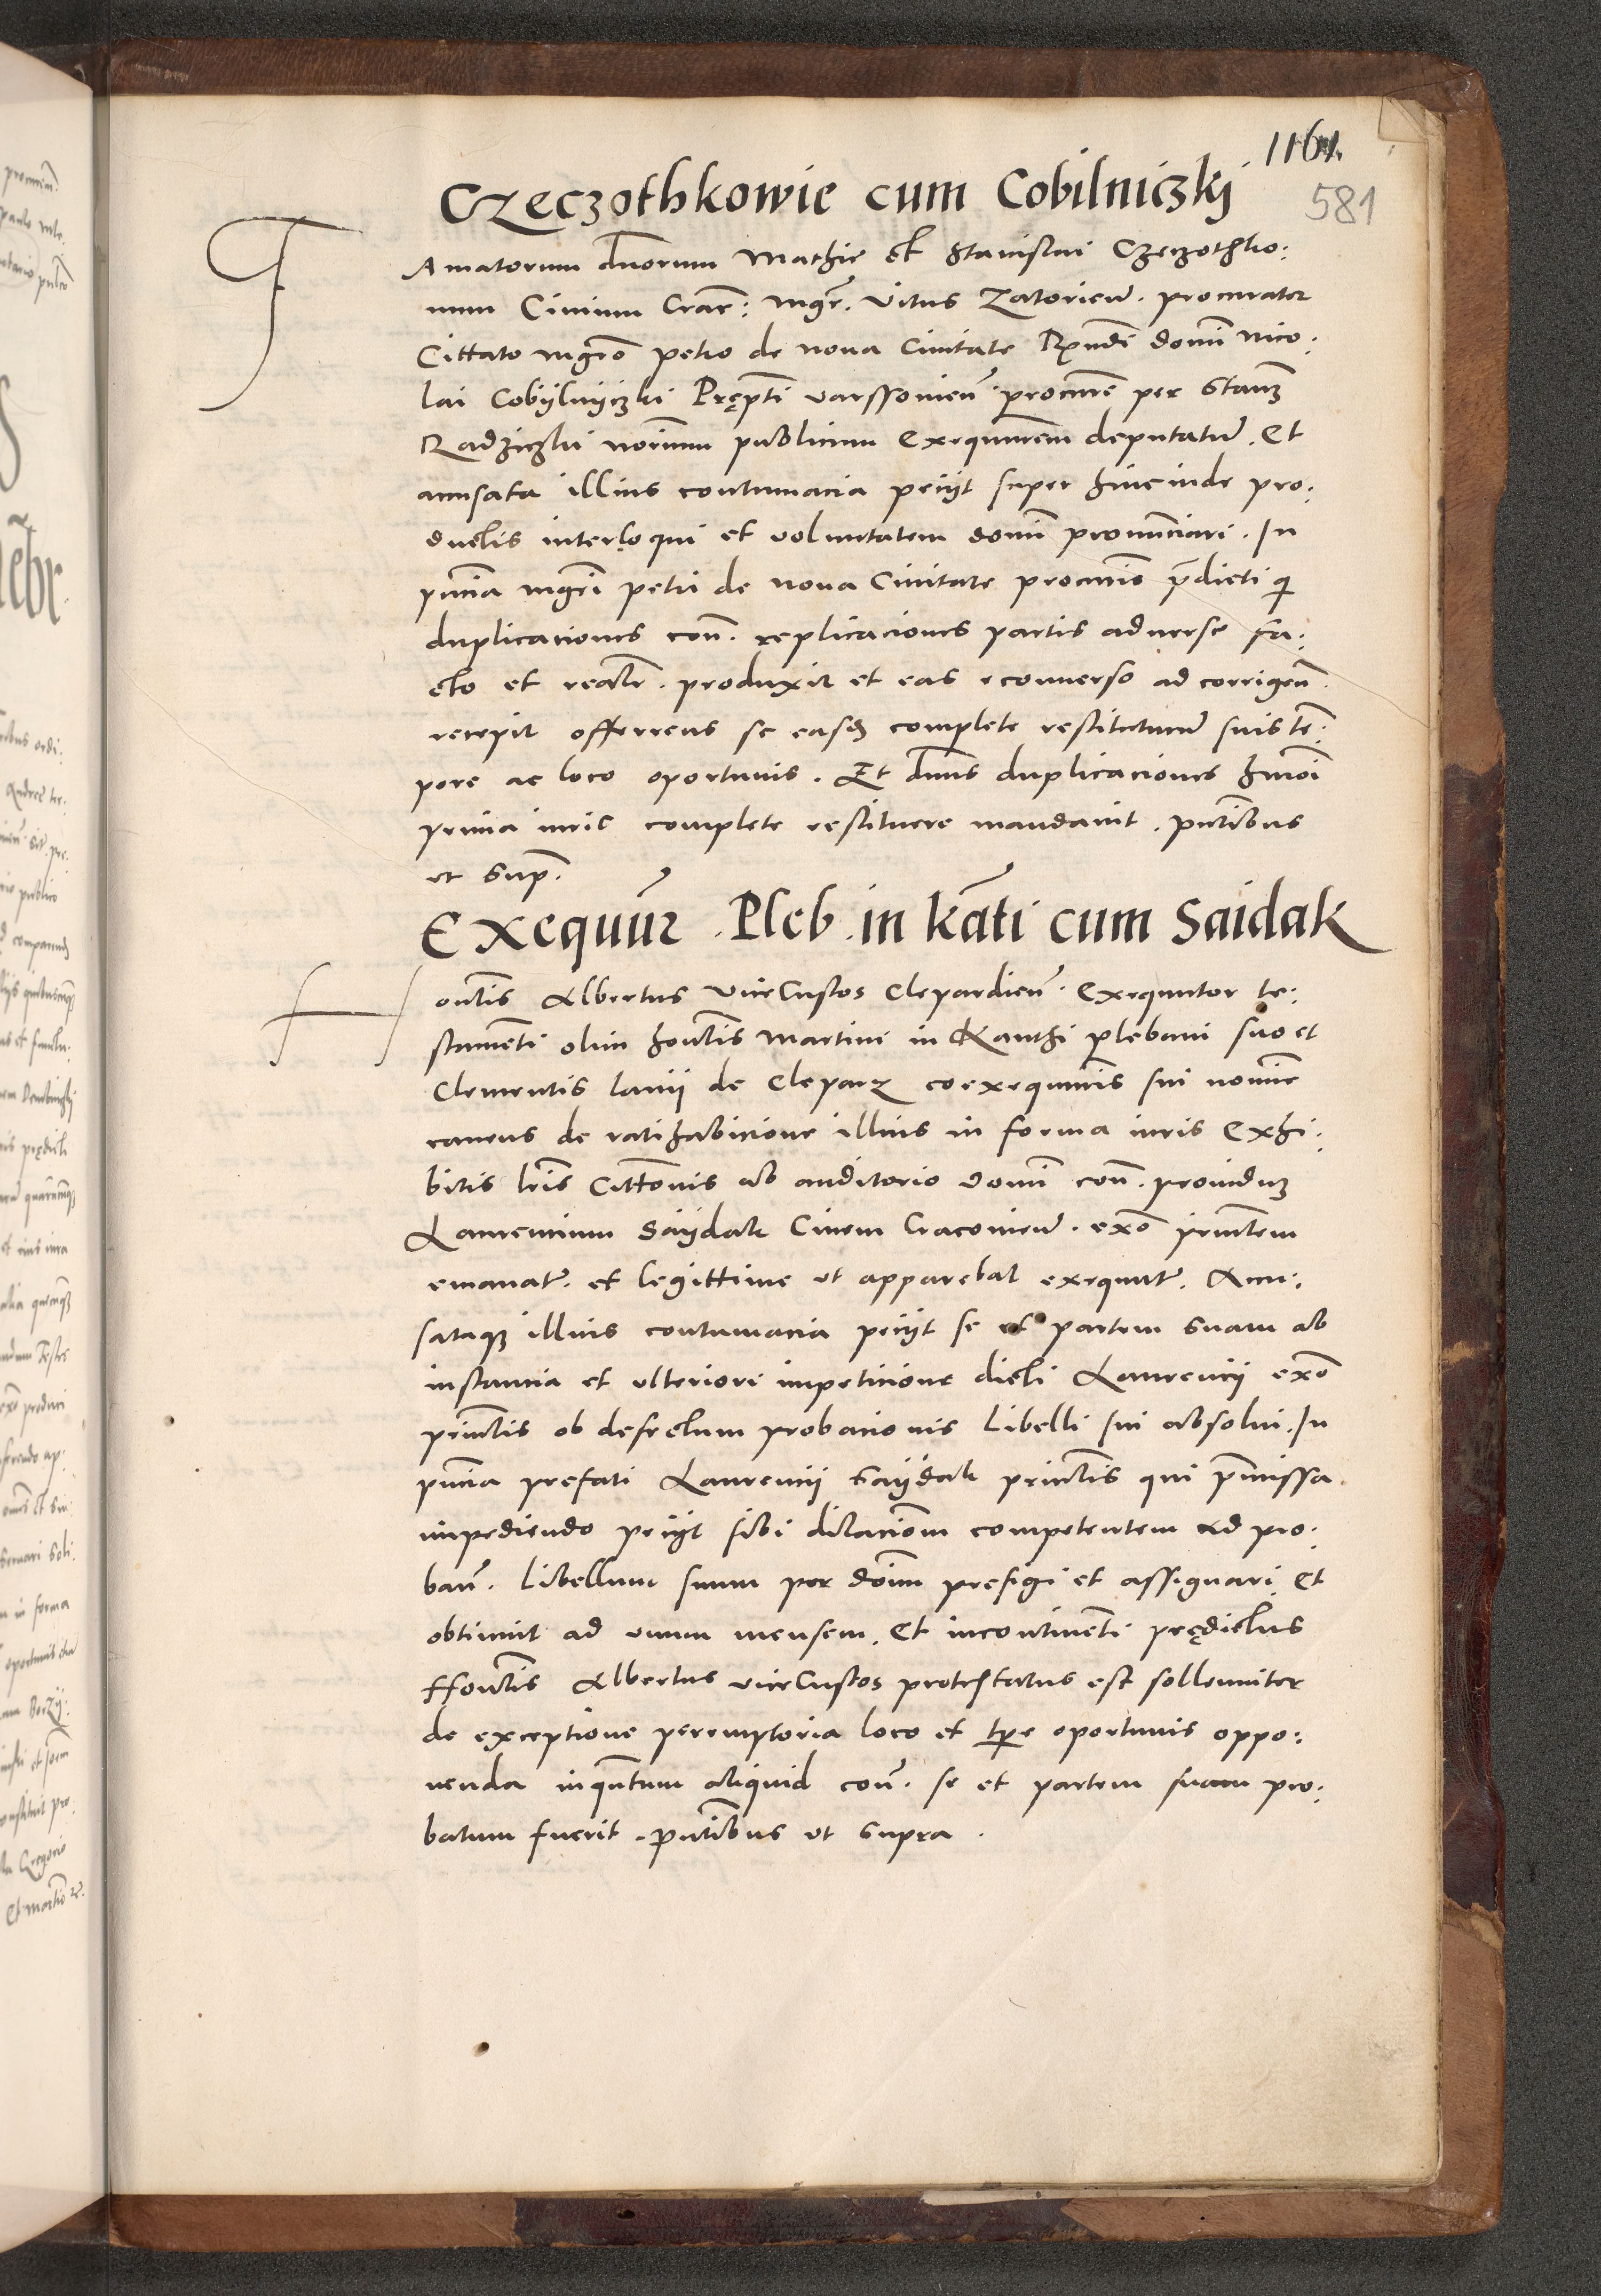 1161
581
Czeczothkowie cum Cobilniczkj
Famatorum dnorum Mathie et Stanislai Czeczothko:
num Civium Crac: mgr. Vitus Zatorien. procurator
Cittato mgro petro de nova Civitate Rndi domi Nico:
lai Cobijlnijczki Prępti varssovien procure per Stanz
Radziczki norium publicum Exequutorem deputatum. Et
accusata illius contumacia petijt super hincinde pro:
ductis interloqui et voluntatem domi pronunciari. In
pncia mgri petri de nova Civitate procuris prdicti qi
duplicaciones con. replicaciones partis adverse fa:
cto et realr. produxit et eas econverso ad corrigen.
recepit offerrens se easdz complete restituturum suis tem:
pore ac loco oportunis. Et dnus duplicaciones hmoi
prima iuris complete restituere mandavit. pntibus
ut supr.
Exequutr. Pleb. in kati cum Saidak
Hontis Albertus viceCustos Clepardien. Exequutor te:
stamenti olim hontis Martini in Kanthi plebani suo et
Clementis lanii de Clepardz coexequutoris sui nomine
cavens de ratihabicione illius in forma iuris Exhi:
bitis lris Cittonis ab auditorio domi con. providum
Laurencium Saijdak Civem Cracovien. exo princtem
emanatis. et legittime ut apparebat exequutis. Accu:
sataqz illius contumacia petijt se et partem suam ab
instancia et ulteriori impeticione dicti Laurencij exo
princtis ob defectum probacionis Libelli sui absolvi. In
pncia prefati Laurencij Saijdak princtis qui prmissa
impediendo petijt sibi dilaciom competentem ad pro:
ban. Libellum suum per doim prefigi et assignari Et
obtinuit ad unum mensem. Et incontinenti prędictus
Hontis Albertus viceCustos protestatus est sollenniter
de exceptione peremptoria loco et tpe oportunis oppo:
nenda inqntum aliquid con. se et partem suam pro:
batum fuerit. pntibus ut supra.